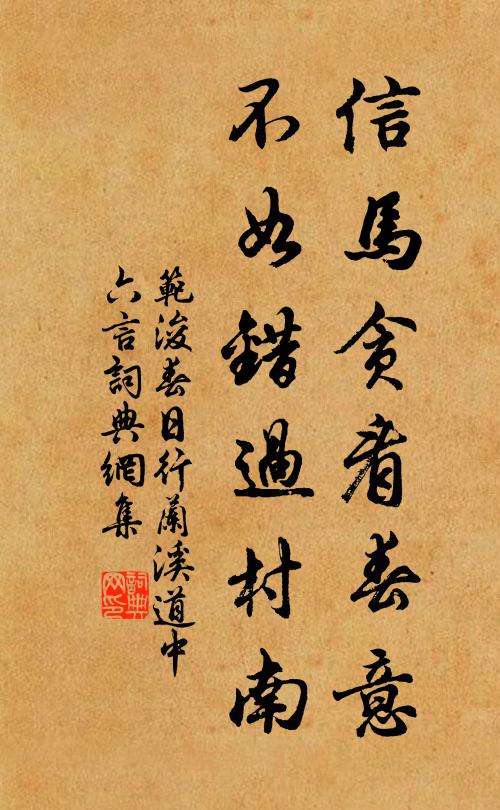 信馬貪看春意
不如錯過村南
範浚春日行蘭溪道中
六言詞典網集
詞典网印